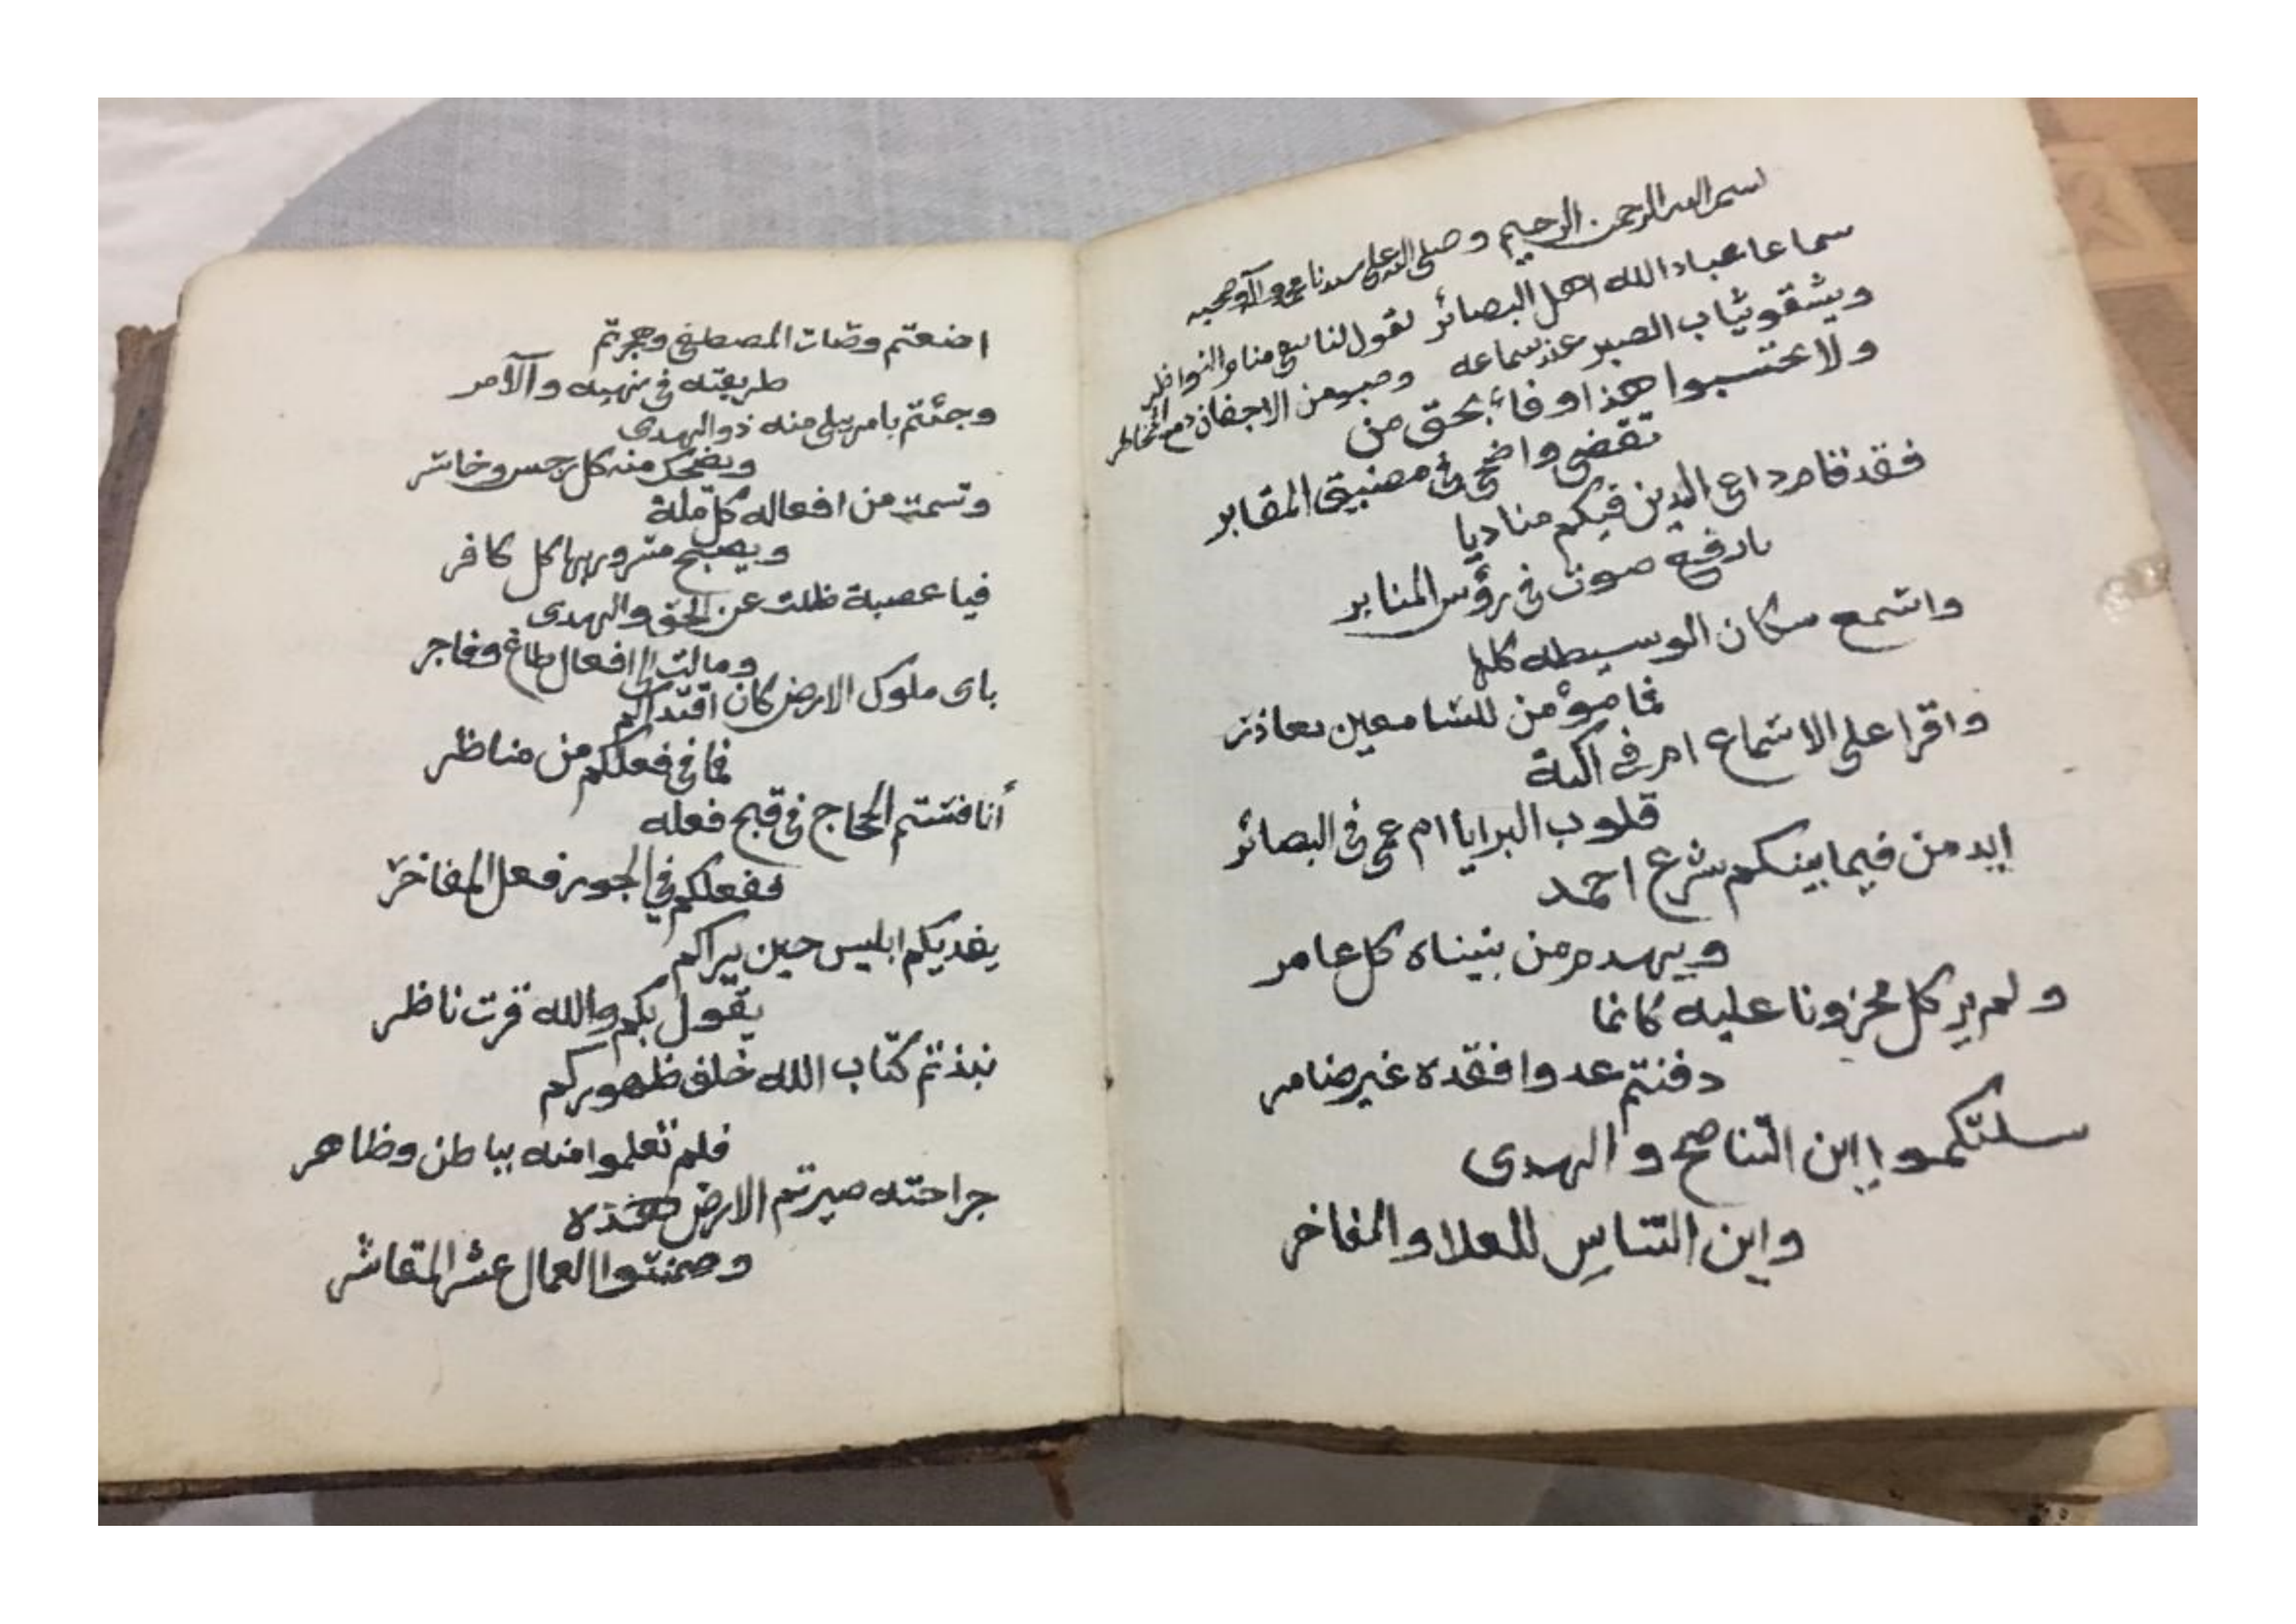 بسم الله الرحمن الرحيم وصلى الله على سيدنا محمد وآله وصحبه
سماعا عباد الله اهل البصائر لقول لنا منا والنواظر
ويشقو ثياب الصبر عند سماعه وصبو من الاجفان دمع
ولا تحتسبوا هذا وفاء بحق من
تقضى واضحى في مضيق المقابر
فقد قام داعي الدين فيكم مناديا
بارفع صوت في رؤس المنابر
واسمع سكان الوسيطه كلها
فما مؤمن للسامعين بعاذر
واقرا على الاسماع ام في اكنة
قلوب البرايا ام عمي في البصائر
ايدمن فيما بينكم شرع احمد
ويهدم من بنيناه كل عامر
ولم ير كل محزونا عليه كانما
دفنتم عدوا فقده غير ضامر
سلتكموا اين التناصح والهدى
واين التناس للعلا والمفاخر
اضعتم وصات المصطفى وهجرتم
طريقته في نهيه والآمر
وجئتم بامر بلي منه ذو الهدى
ويضحك منه كل رجس وخاسر
وتسمت من افعاله كل ملة
ويصبح مسرور بها كل كافر
فيا عصبة ظلت عن الحق والهدى
ومالت الى افعال طاغ وفاجر
باى ملوك الارض كان اقتداكم
فما في فعلكم من مناظر
أنافستم الحجاج في قبح فعله
ففعلكم في الجور فعل المفاخر
يفديكم ابليس حين يراكم
يقول بكم والله قرت ناظر
نبذتم كتاب الله خلف ظهوركم
فلم تعلموا منه بباطن وظاهر
جراحته صيرتم الارض هذه
وضمنتوا العمال عشر المقاشر